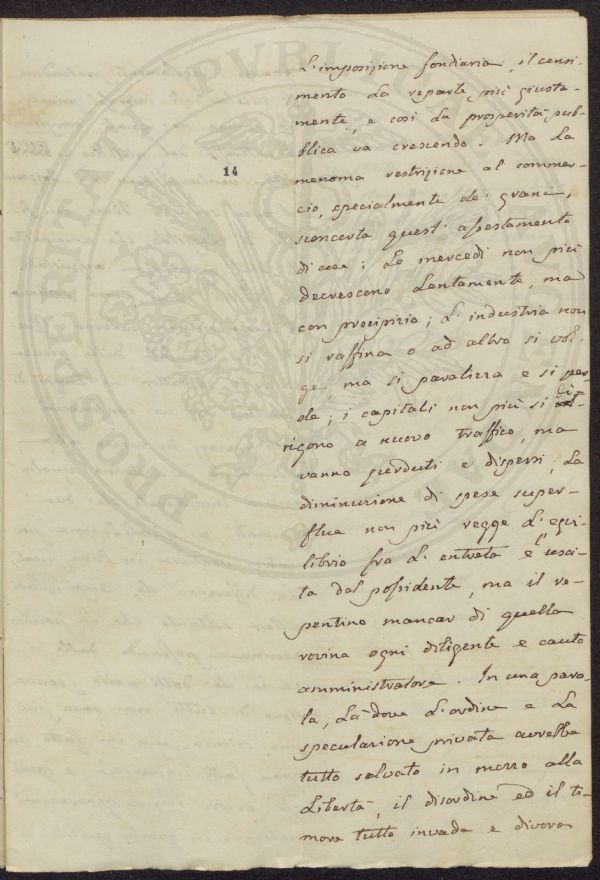 L'imposizione fondiaria, il censi-
mento La reparte più giusta-
mente, e così La prosperità pub-
blica va crescendo. Ma La
14
menoma restrizione al commer-
cio, specialmente de' grani,
sconcerta quest' assestamento
di cose: Le mercedi non più
decrescono Lentamente, ma
con precipizio; L'industria non
si raffina o ad altro si vol-
ge, ma si paralizza e si per-
de; i capitali non più si di-
rigono a nuovo traffico, ma
vanno perduti e dispersi; La
diminuzione di spese super-
flue non più regge L'equi-
librio fra L'entrata e l'usci-
ta del possidente, ma il re-
pentino mancar di quella
rovina ogni diligente e cauto
amministratore. In una paro-
la, Là dove L'ordine e La
speculazione privata avrebbe
tutto salvato in mezzo alla
Libertà, il disordine ed il ti-
more tutto invade e divora
PROSPERITATI PVBLICAE